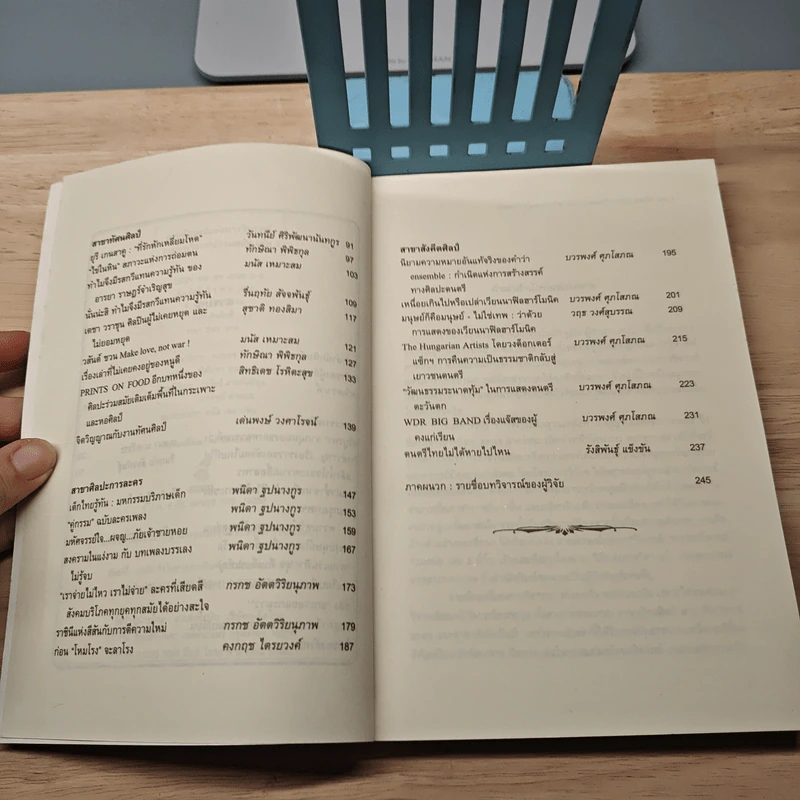 สาขาทัศนศิลป์
ยูริ เกนสาคู : "ที่รักหักเหลี่ยมโหด" วันทนีย์ ศิริพัฒนานันทกูร 91
"ไข่ในหิน" สภาวะแห่งการถ่อมตน ทักษิณา พิพิธกุล 97
ทำไมจึงมีรสกวีแทนความรู้ทัน ของ มนัส เหมาะสม 103
อารยา ราษฎร์จำเริญสุข
นั่นน่ะสิ ทำไมจึงมีรสกวีแทนความรู้ทัน รื่นฤทัย สัจจพันธุ์ 109
เดชา วราชุน ศิลปินผู้ไม่เคยหยุด และ สุชาติ ทองสิมา 117
ไม่ยอมหยุด
วสันต์ ชวน Make love, not war ! มนัส เหมาะสม 121
เรื่องเล่าที่ไม่เคยคงอยู่ของหนูดี ทักษิณา พิพิธกุล 127
PRINTS ON FOOD อีกบทหนึ่งของ สิทธิเดช โรหิตะสุข 133
ศิลปะร่วมสมัยเติมเต็มพื้นที่ในกระเพาะ
และหอศิลป์
จิตวิญญาณกับงานทัศนศิลป์ เด่นพงษ์ วงศาโรจน์ 139
สาขาศิลปะการละคร
เด็กไทยรู้ทัน : มหกรรมบริภาษเด็ก พนิดา ฐปนางกูร 147
"คู่กรรม" ฉบับละครเพลง พนิดา ฐปนางกูร 153
มหัศจรรย์ใจ...ผจญ...ภัยเจ้าชายหอย พนิดา ฐปนางกูร 159
สงครามในแง่งาม กับ บทเพลงบรรเลง พนิดา ฐปนางกูร 167
ไม่รู้จบ
"เราจ่ายไม่ไหว เราไม่จ่าย" ละครที่เสียดสี กรกช อัตตวิริยะนุภาพ 173
สังคมบริโภคทุกยุคทุกสมัยได้อย่างสะใจ
ราชินีแห่งสีสันกับการตีความใหม่ กรกช อัตตวิริยะนุภาพ 179
ก่อน "โหมโรง" จะลาโรง คงกฤช ไตรยวงค์ 187
สาขาสังคีตศิลป์
นิยามความหมายอันแท้จริงของคำว่า บวรพงศ์ ศุภโสภณ 195
ensemble : กำเนิดแห่งการสร้างสรรค์
ทางศิลปะดนตรี
เหนื่อยเกินไปหรือเปล่าเวียนนาฟิลฮาร์โมนิค บวรพงศ์ ศุภโสภณ 201
มนุษย์ก็คือมนุษย์ - ไม่ใช่เทพ : ว่าด้วย วฤธ วงศ์สุบรรณ 209
การแสดงของเวียนนาฟิลฮาร์โมนิค
The Hungarian Artists โดยวงด็อกเตอร์ บวรพงศ์ ศุภโสภณ 215
แซ็กฯ การคืนความเป็นธรรมชาติกลับสู่
เยาวชนดนตรี
"วัฒนธรรมระนาดทุ้ม" ในการแสดงดนตรี บวรพงศ์ ศุภโสภณ 223
ตะวันตก
WDR BIG BAND เรื่องแจ๊สของผู้ บวรพงศ์ ศุภโสภณ 231
คงแก่เรียน
ดนตรีไทยไม่ได้หายไปไหน รังสิพันธุ์ แข็งขัน 237
ภาคผนวก : รายชื่อบทวิจารณ์ของผู้วิจัย 245